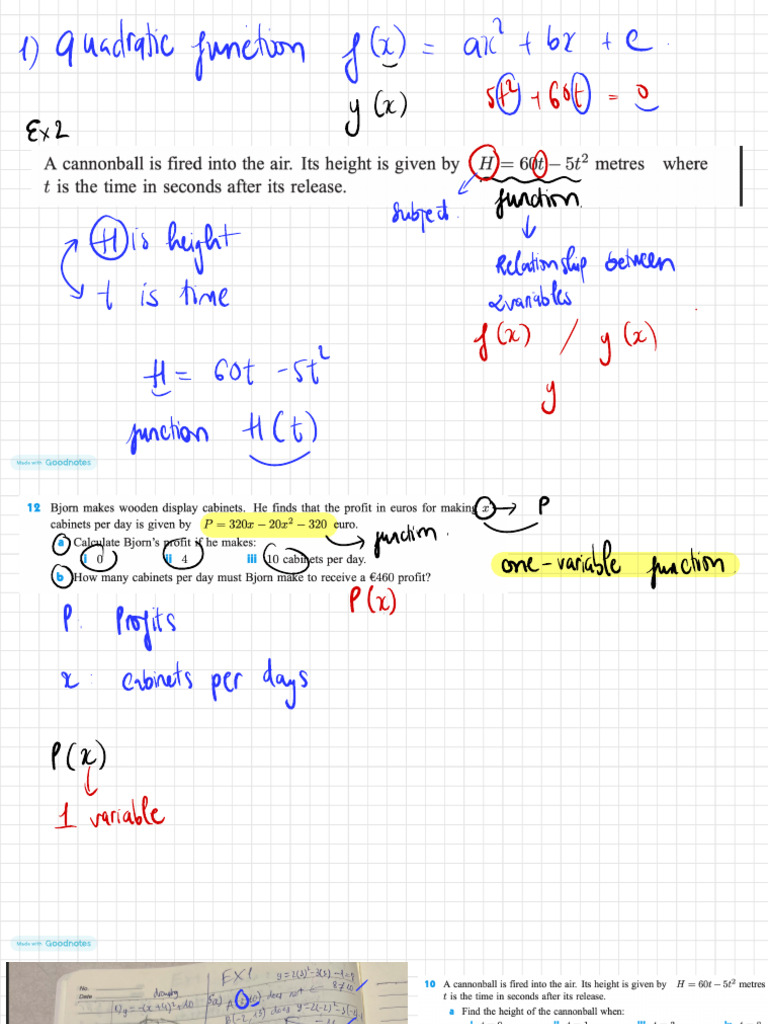 1) Quadratic function f(x) = ax² + bx + c
y(x) 5t² + 60t = 0
Ex2
A cannonball is fired into the air. Its height is given by H = 60t − 5t² metres where
t is the time in seconds after its release.
subject function
H is height
t is time
Relationship between
2 variables
f(x) / y(x)
y
H = 60t - 5t²
function H(t)
Made with Goodnotes
12 Bjorn makes wooden display cabinets. He finds that the profit in euros for making x → P
cabinets per day is given by P = 320x − 20x² − 320 euro.
function
a Calculate Bjorn's profit if he makes:
i 0 ii 4 iii 10 cabinets per day.
one-variable function
b How many cabinets per day must Bjorn make to receive a €460 profit?
P(x)
P: Profits
x: cabinets per days
P(x)
1 variable
Made with Goodnotes
No.
Date
drawing
EX1
10 A cannonball is fired into the air. Its height is given by H = 60t − 5t² metres
t is the time in seconds after its release.
a Find the height of the cannonball when: